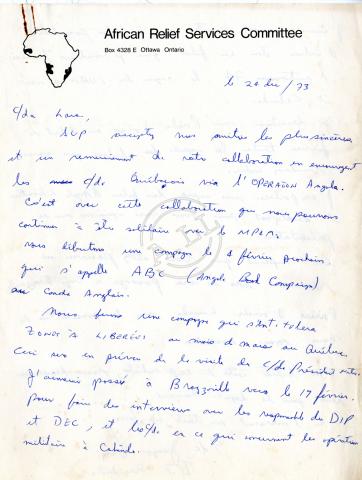 African Relief Services Committee
Box 4328 E Ottawa Ontario
le 20 dec / 73
c/da Lara,
SVP acceptez nos amitiés les plus sincères
et un remerciement de votre collaboration en encourageant
les c/da Québecois via l'OPERATION Angola.
C'est avec cette collaboration que nous pouvons
continuer à être solidaire avec le MPLA.
Nous débutons une campagne le 4 février prochain
qui s'appelle ABC (Angola Book Campaign)
au Canada Anglais.
Nous ferons une campagne qui
ZONES LIBEREES au mois de mars au Québec.
Ceci sera en prévue de la visite du c/da Président
J'aimerais passer à Brazzaville vers le 17 février
pour faire des interviews avec les responsables du DIP
et DEC, et en ce qui concernent les opérations
militaire à Cabinda.